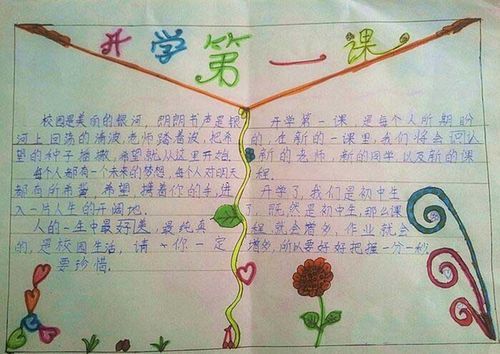 开学第一课
校园是美丽的银河，朗朗书声是银
河上回荡的清波，老师踏着波，把希
望的种子播撒，希望就从这里开始。
每个人都有一个未来的梦想，每个人对明天
都有所希冀 希望 撞着你的手，进
入一片人生的开阔地，
人的一生中最好，最纯真
的，是校园生活，请你一定
要珍惜，
开学第一课，是每个人所期盼
的，在新的一课里，我们将会回认
新的老师，新的同学以及新的课
程。
开学了，我们是初中生
了，既然是初中生，那么课
程就会增多，作业就会
增多，所以要好好把握一分一秒。